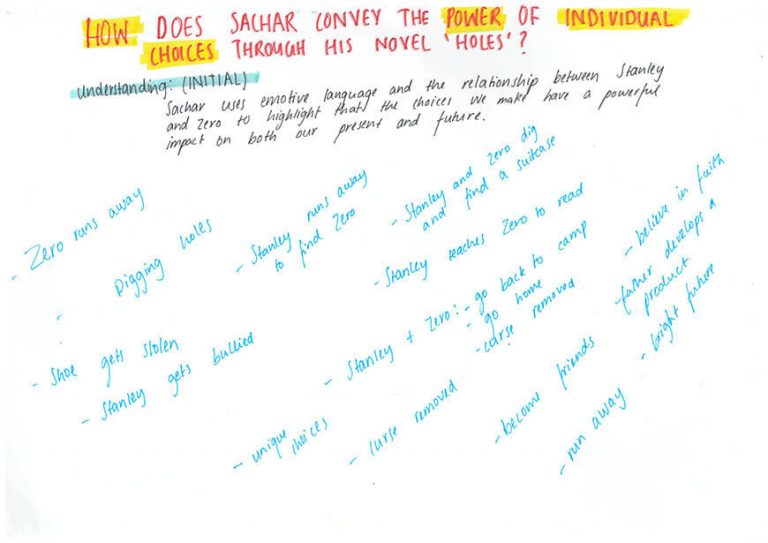 HOW DOES SACHAR CONVEY THE POWER OF INDIVIDUAL
CHOICES THROUGH HIS NOVEL 'HOLES'?
Understanding: (INITIAL)
Sachar uses emotive language and the relationship between Stanley
and Zero to highlight that the choices we make have a powerful
impact on both our present and future.
- Zero runs away
- Digging holes
- Stanley runs away
to find Zero
- Stanley and Zero dig
and find a suitcase
- Stanley teaches Zero to read
- believe in faith
- father develops a
product
- bright future
- Shoe gets stolen
- Stanley gets bullied
- Stanley + Zero: - go back to camp
- go home
- curse removed
- unique
choices
- curse removed
- become friends
- run away